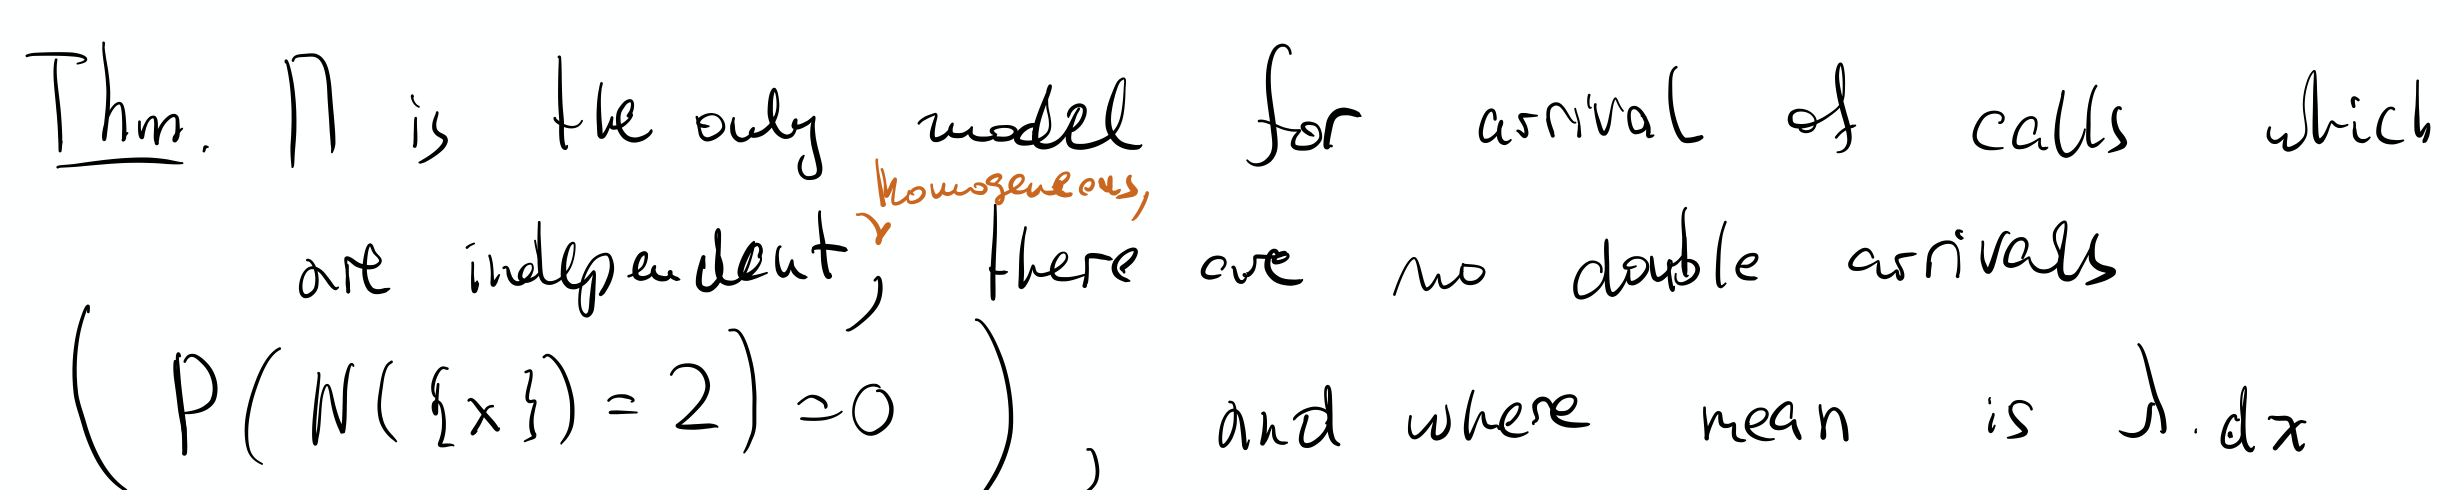 Thm. Π is the only model for arrival of calls which
homogeneous,
are independent, there are no double arrivals
(P(N({x})=2)=0), and where mean is λ.dx